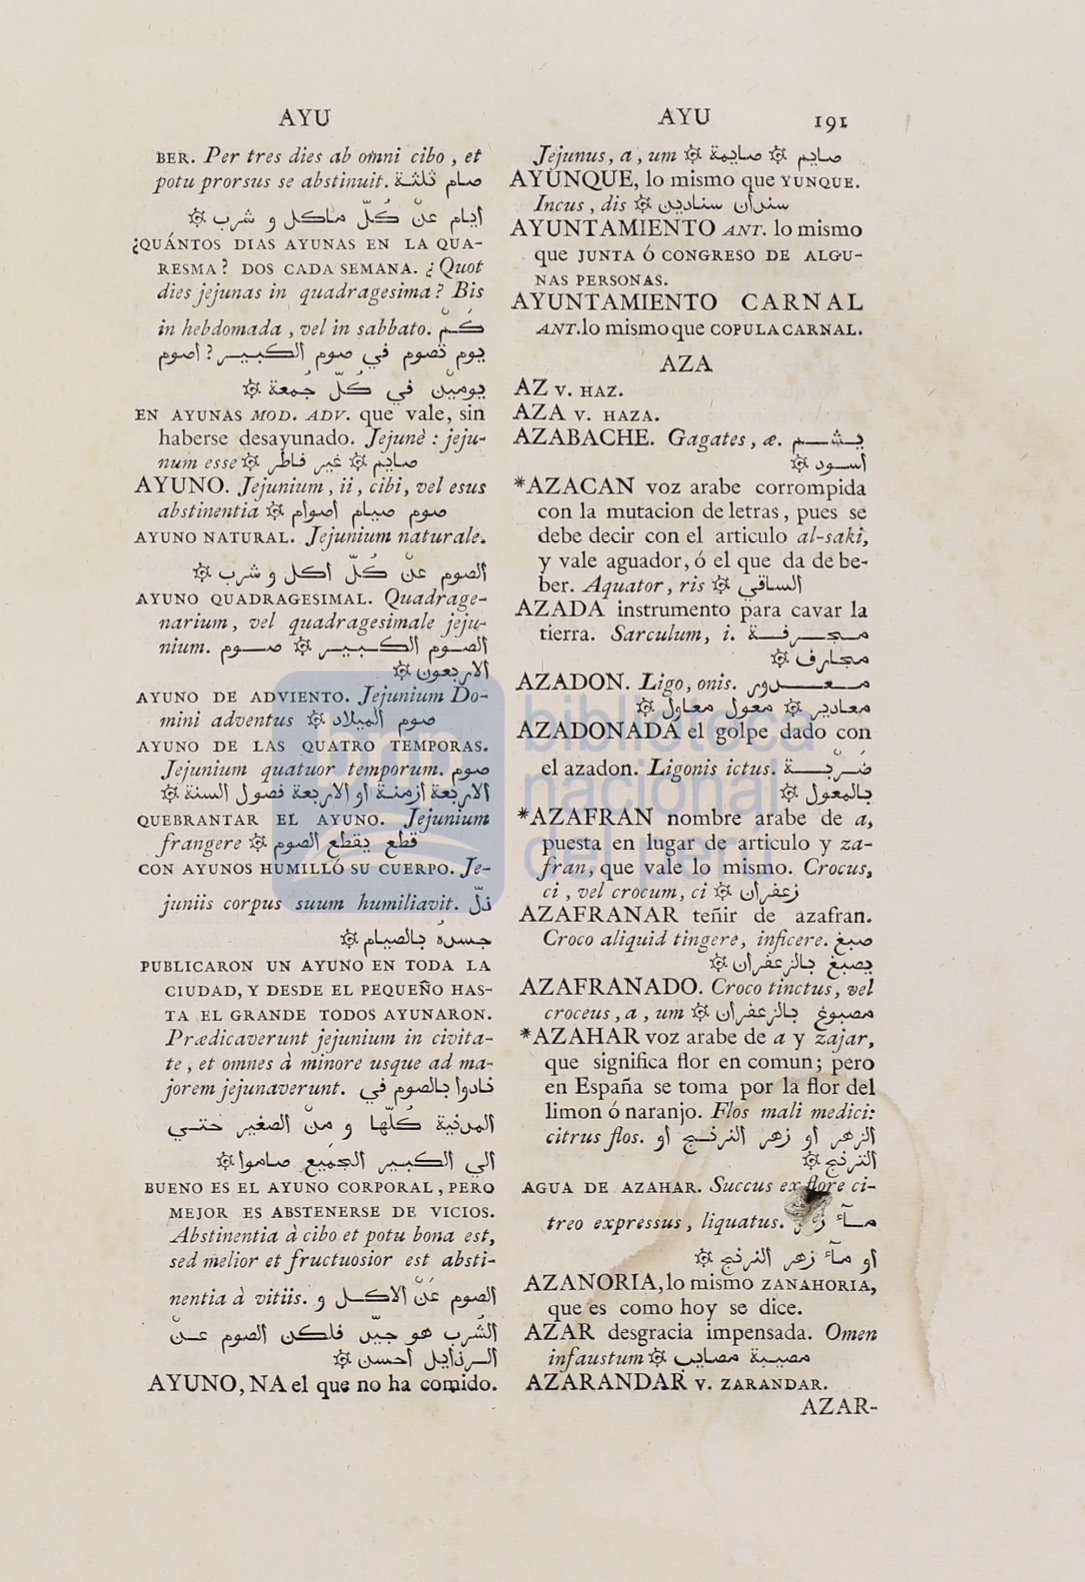 AYU
BER. Per tres dies ab omni cibo , et
potu prorsus se abstinuit. صام ثلثة
ايام عن كُلّ ماكل و شرب ۞
¿QUÁNTOS DIAS AYUNAS EN LA QUA-
RESMA? DOS CADA SEMANA. ¿ Quot
dies jejunas in quadragesima? Bis
in hebdomada , vel in sabbato. كَمْ
يوم تصوم في صوم الكبير؟ اصوم
يومين في كُلّ جُمعة ۞
EN AYUNAS MOD. ADV. que vale, sin
haberse desayunado. Jejunè : jeju-
num esse ۞ صايم ۞ غير فاطر
AYUNO. Jejunium , ii , cibi, vel esus
abstinentia ۞ صوم صيام اصوام
AYUNO NATURAL. Jejunium naturale.
الصوم عن كُلّ اكل و شرب ۞
AYUNO QUADRAGESIMAL. Quadrage-
narium, vel quadragesimale jeju-
nium. الصوم الكبير ۞ صوم
الاربعون ۞
AYUNO DE ADVIENTO. Jejunium Do-
mini adventus ۞ صوم الميلاد
AYUNO DE LAS QUATRO TEMPORAS.
Jejunium quatuor temporum. صوم
الاربعة ازمنة او الاربعة فصول السنة ۞
QUEBRANTAR EL AYUNO. Jejunium
frangere ۞ قطع يقطع الصوم
CON AYUNOS HUMILLÓ SU CUERPO. Je-
juniis corpus suum humiliavit. ذلّ
جسدهُ بالصيام ۞
PUBLICARON UN AYUNO EN TODA LA
CIUDAD, Y DESDE EL PEQUEÑO HAS-
TA EL GRANDE TODOS AYUNARON.
Prædicaverunt jejunium in civita-
te , et omnes à minore usque ad ma-
jorem jejunaverunt. نادوا بالصوم في
المدنية كُلّها و من الصغير حتي
الي الكبير الجميع صاموا ۞
BUENO ES EL AYUNO CORPORAL , PERO
MEJOR ES ABSTENERSE DE VICIOS.
Abstinentia à cibo et potu bona est,
sed melior et fructuosior est absti-
nentia à vitiis. الصوم عن الاكل و
الشُرب هو جيّد فلكن الصوم عن
الرذايل احسن ۞
AYUNO, NA el que no ha comido.
AYU 191
Jejunus, a , um ۞ صايم ۞ صايمة
AYUNQUE, lo mismo que YUNQUE.
Incus , dis ۞ سندان سنادين
AYUNTAMIENTO ANT. lo mismo
que JUNTA Ó CONGRESO DE ALGU-
NAS PERSONAS.
AYUNTAMIENTO CARNAL
ANT. lo mismo que COPULA CARNAL.
AZA
AZ V. HAZ.
AZA V. HAZA.
AZABACHE. Gagates , æ. يشم
اسود ۞
*AZACAN voz arabe corrompida
con la mutacion de letras, pues se
debe decir con el articulo al-saki,
y vale aguador, ó el que da de be-
ber. Aquator, ris ۞ الساقي
AZADA instrumento para cavar la
tierra. Sarculum, i. مجرفة
مجارف ۞
AZADON. Ligo, onis. معدور
معادير ۞ معول معاول ۞
AZADONADA el golpe dado con
el azadon. Ligonis ictus. ضَرْبة
بالمعول ۞
*AZAFRAN nombre arabe de a,
puesta en lugar de articulo y za-
fran, que vale lo mismo. Crocus,
ci , vel crocum, ci ۞ زعفران
AZAFRANAR teñir de azafran.
Croco aliquid tingere, inficere. صبغ
يصبغ بالزعفران ۞
AZAFRANADO. Croco tinctus, vel
croceus , a , um ۞ مصبوغ بالزعفران
*AZAHAR voz arabe de a y zajar,
que significa flor en comun; pero
en España se toma por la flor del
limon ó naranjo. Flos mali medici:
citrus flos. الزهر او زهر النرنج او
الترنج ۞
AGUA DE AZAHAR. Succus ex flore ci-
treo expressus, liquatus. مآء
او مآء زهر النرنج ۞
AZANORIA, lo mismo ZANAHORIA,
que es como hoy se dice.
AZAR desgracia impensada. Omen
infaustum ۞ مصيبة مصايب
AZARANDAR V. ZARANDAR.
AZAR-
bnp
biblioteca
nacional
del perú